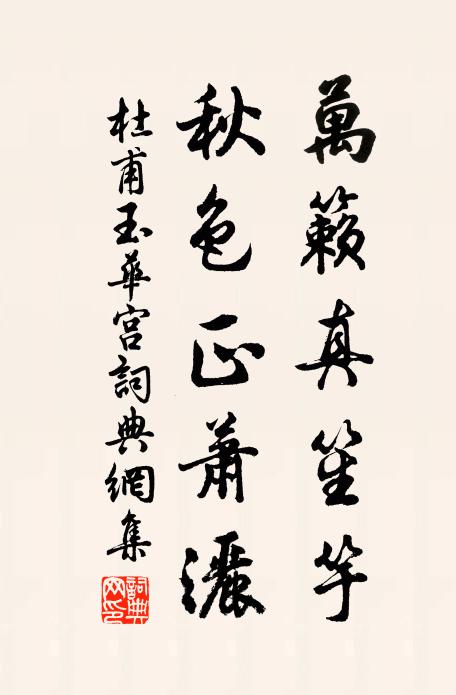 萬籟真笙竽
秋色正蕭灑
杜甫玉華宮詞典網集
詞典網印